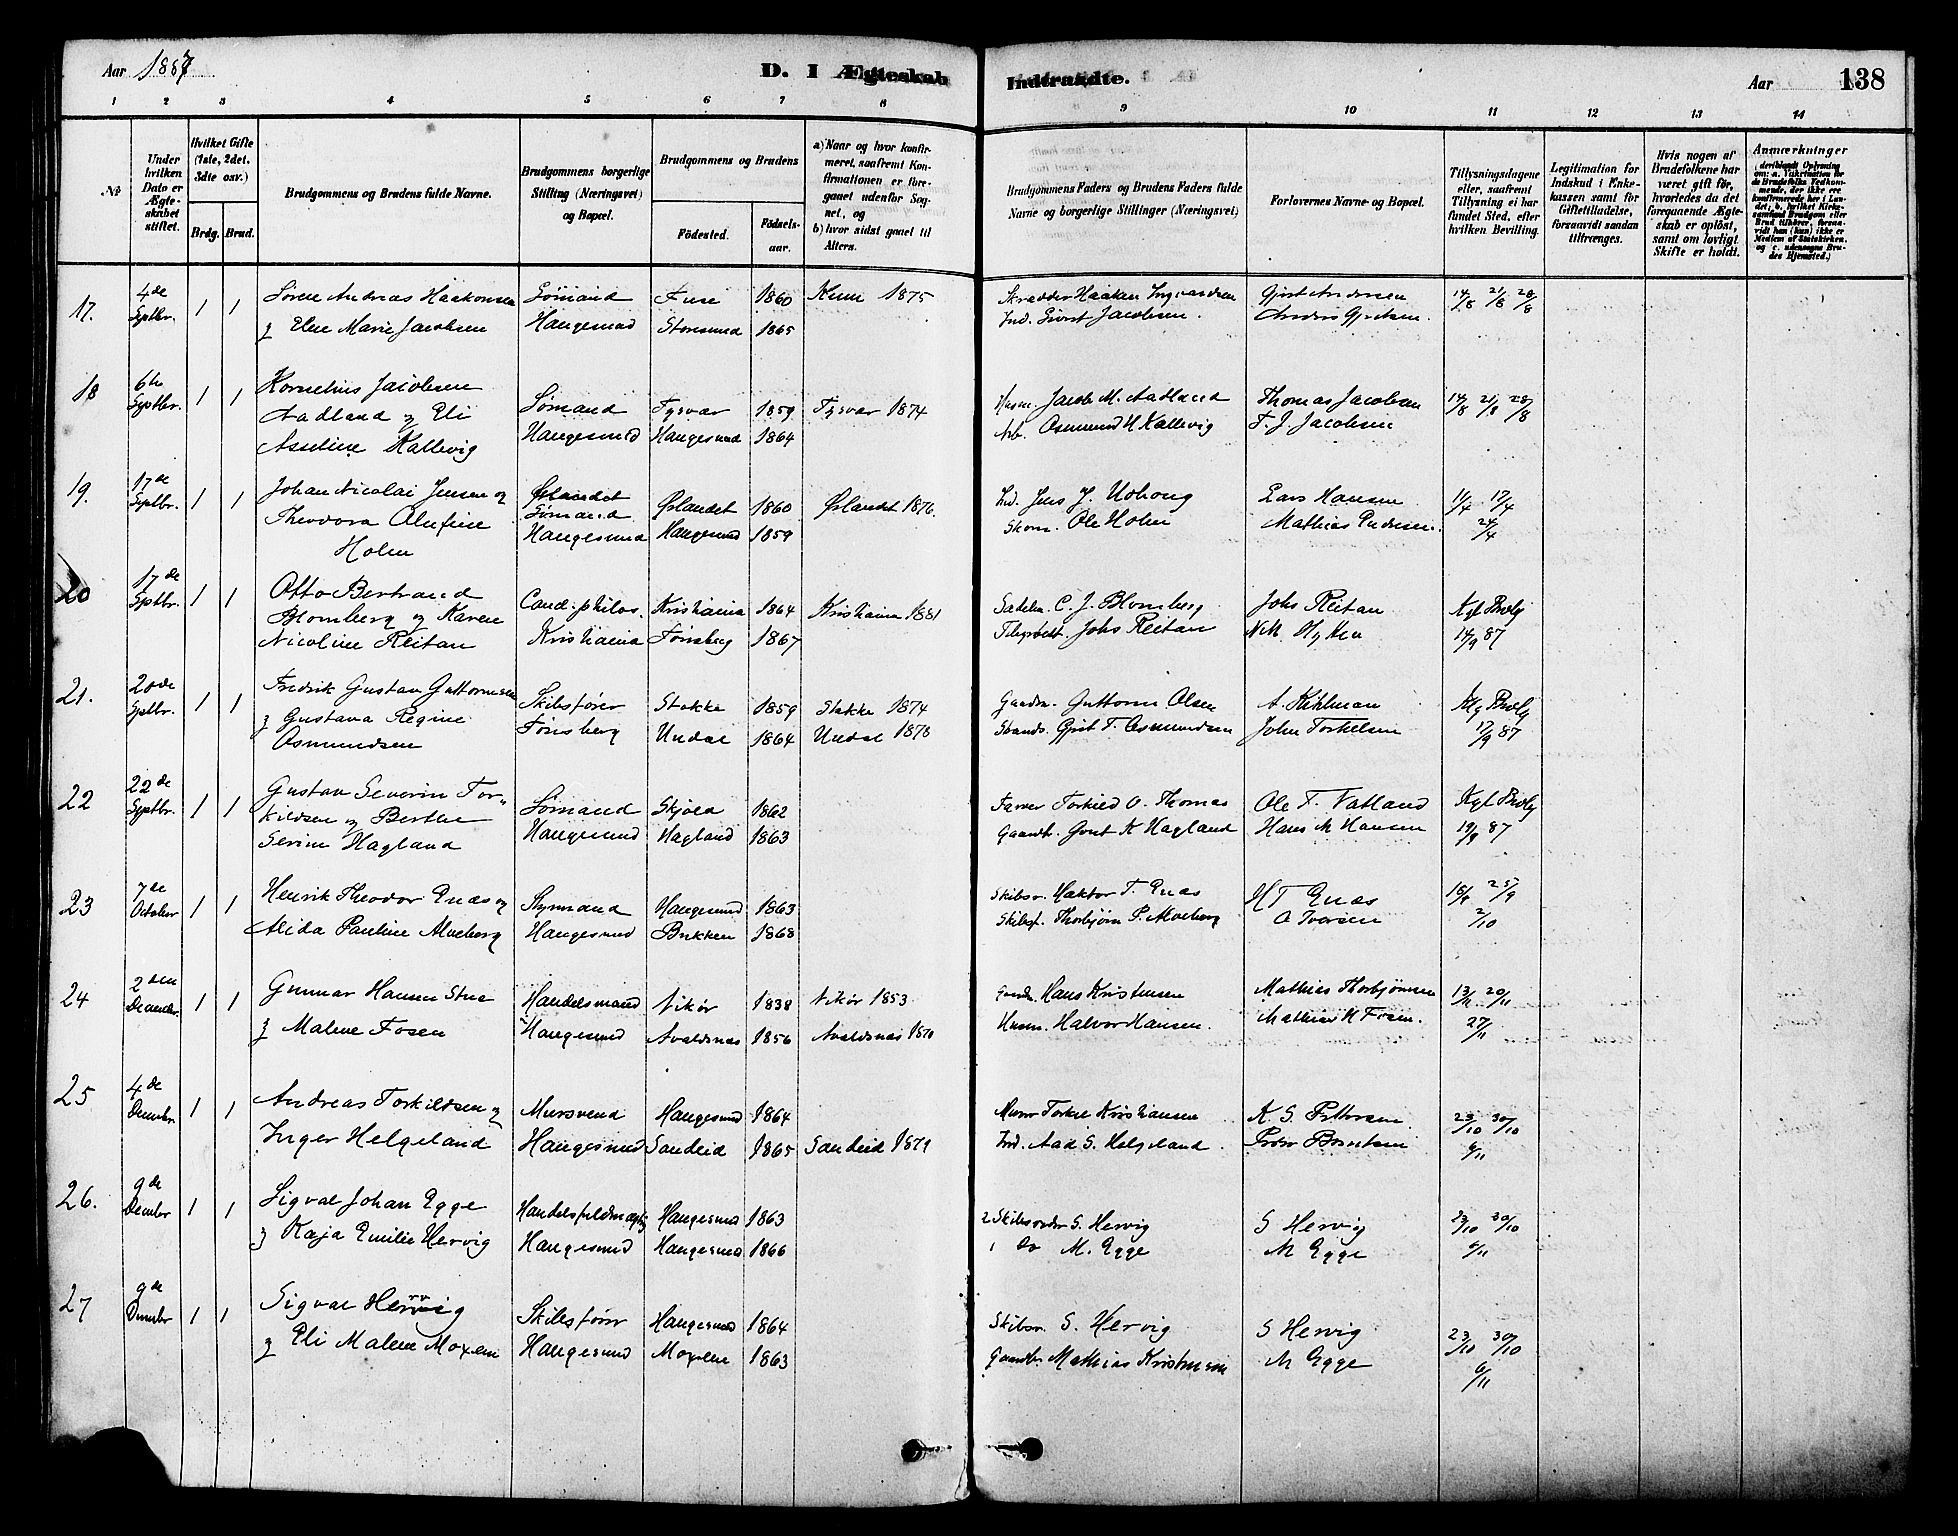 Aar 1887
D. I Ægteskab Indtraadte.
Aar
138
1 2 3 4 5 6 7 8 9 10 11 12 13 14
No
Under hvilken Dato er Ægteskabet stiftet.
Hvilket Gifte (1ste, 2det, 3dte osv.)
Brdg. Brud.
Brudgommens og Brudens fulde Navne.
Brudgommens borgerlige Stilling (Næringsvei) og Bopæl.
Brudgommens og Brudens
Fødested.
Fødsels-aar.
a) Naar og hvor konfirmeret, saafremt Konfirmationen er foregaaet udenfor Sognet, og
b) hvor sidst gaaet til Alters.
Brudgommens Faders og Brudens Faders fulde Navne og borgerlige Stillinger (Næringsvei)
Forlovernes Navne og Bopæl.
Tillysningsdagene eller, saafremt Tillysning ei har fundet Sted, efter hvilken Bevilling.
Legitimation for Indskud i Enkekassen samt for Giftetilladelse, forsaavidt saadan tiltrænges.
Hvis nogen af Brudefolkene har været gift før, hvorledes da det foregaaende Ægteskab er opløst, samt om lovligt Skifte er holdt.
Anmærkninger
17. 4de Septbr. 1 1 Søren Andreas Haakonsen Sømand Fuse 1860 Kum 1875 Skrædder Haakon Ingvardsen Gjert Andersen 14/8 21/8 28/8
og Eline Marie Jacobsen Haugesund Storesund 1865 Ind. Sivert Jacobsen. Anders Gjertsen.
18 6te Septbr. 1 1 Kornelius Jacobsen
Aadland og Eli Sømand Tysvær 1859 Tysvær 1874 Husm. Jacob M. Aadland Thomas Jacobsen 14/8 21/8 28/8
Asseline Kallevig Haugesund Haugesund 1864 Arb. Osmund H Kallevig F. J. Jacobsen
19. 17de Septbr. 1 1 Johan Nicolai Jensen og Ørlandet Sømand Ørlandet 1860 Ørlandet 1876. Ind. Jens J. Udhoug Lars Hansen 11/4 17/4
Theodora Olufine Holm Haugesund Haugesund 1859 Skom. Ole Holm Mathias Pedersen. 24/4
20 17de Septbr. 1 1 Otto Bertrand
Blomberg og Karen Cand. philos. Kristiania 1864 Kristiania 1881 Sadelm. C. J. Blomberg Johs Reitan Kgl Bevlg
Nicoline Reitan Kristiania Tønsberg 1867 Telegrbest. Johs Reitan 14/9 87
21. 20de Septbr. 1 1 Fredrik Gustav Guttormsen Skibsfører Stokke 1859 Stokke 1874 Gaardm. Guttorm Olsen A. Kihlman Klg Bevlg
og Gustava Regine Osmundsen Tønsberg Undal 1864 Undal 1878 Strands. Gjert T. Osmundsen John Torkelsen 17/9 87
22 22de Septbr. 1 1 Gustav Severin Tor-
kildsen og Berthe Sømand Skjold 1862 Farver Torkild O. Thomas Ole T. Vatland Kgl Bevlg
Serine Hagland Haugesund Hagland 1863 Gaardb. Govt K Hagland Hans M Hansen 19/9 87
23 7de October 1 1 Henrik Theodor Enæs og Styrmand Haugesund 1863 Skibsr. Haktor T. Enæs H T Enæs 18/9 25/9
Alida Pauline Alveberg Haugesund Bukken 1868 Skibsf. Thorbjørn P. Alveberg O Iversen 2/10
24 2den December. 1 1 Gunnar Hansen Stue Handelsmand Vikør 1838 Vikør 1853 Gaardm. Hans Kristensen Mathias Thorbjørnsen 13/11 20/11
og Malene Fosen Haugesund Avaldsnæs 1856 Avaldsnæs 1870 Husm. Halvor Hansen. Mathias H Fosen. 27/11
25 4de Decembr. 1 1 Andreas Torkildsen og Mursvend Haugesund 1864 Murer Torkel Kristiansen K. S. Pettersen 23/10 30/10
Inger Helgeland Haugesund Sandeid 1865 Sandeid 1879 Ind. Aad S. Helgeland. Peder Berentsen 6/11
26. 9de Decembr 1 1 Sigval Johan Egge Handelsfuldmægtig Haugesund 1863 2 Skibsreder S. Hervig S Hervig 23/10 30/10
og Kaja Emilie Hervig Haugesund Haugesund 1866 1 Do M. Egge M Egge 6/11
27 9de Decembr 1 1 Sigval Hervig Skibsfører Haugesund 1864 Skibsr. S. Hervig S Hervig 23/10 30/10
og Eli Malene Moxem Haugesund Moxene 1863 Gaardbr. Mathias Kristensen M Egge 6/11